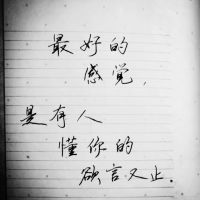 最好的
感觉,
是有人
懂你的
欲言又止.